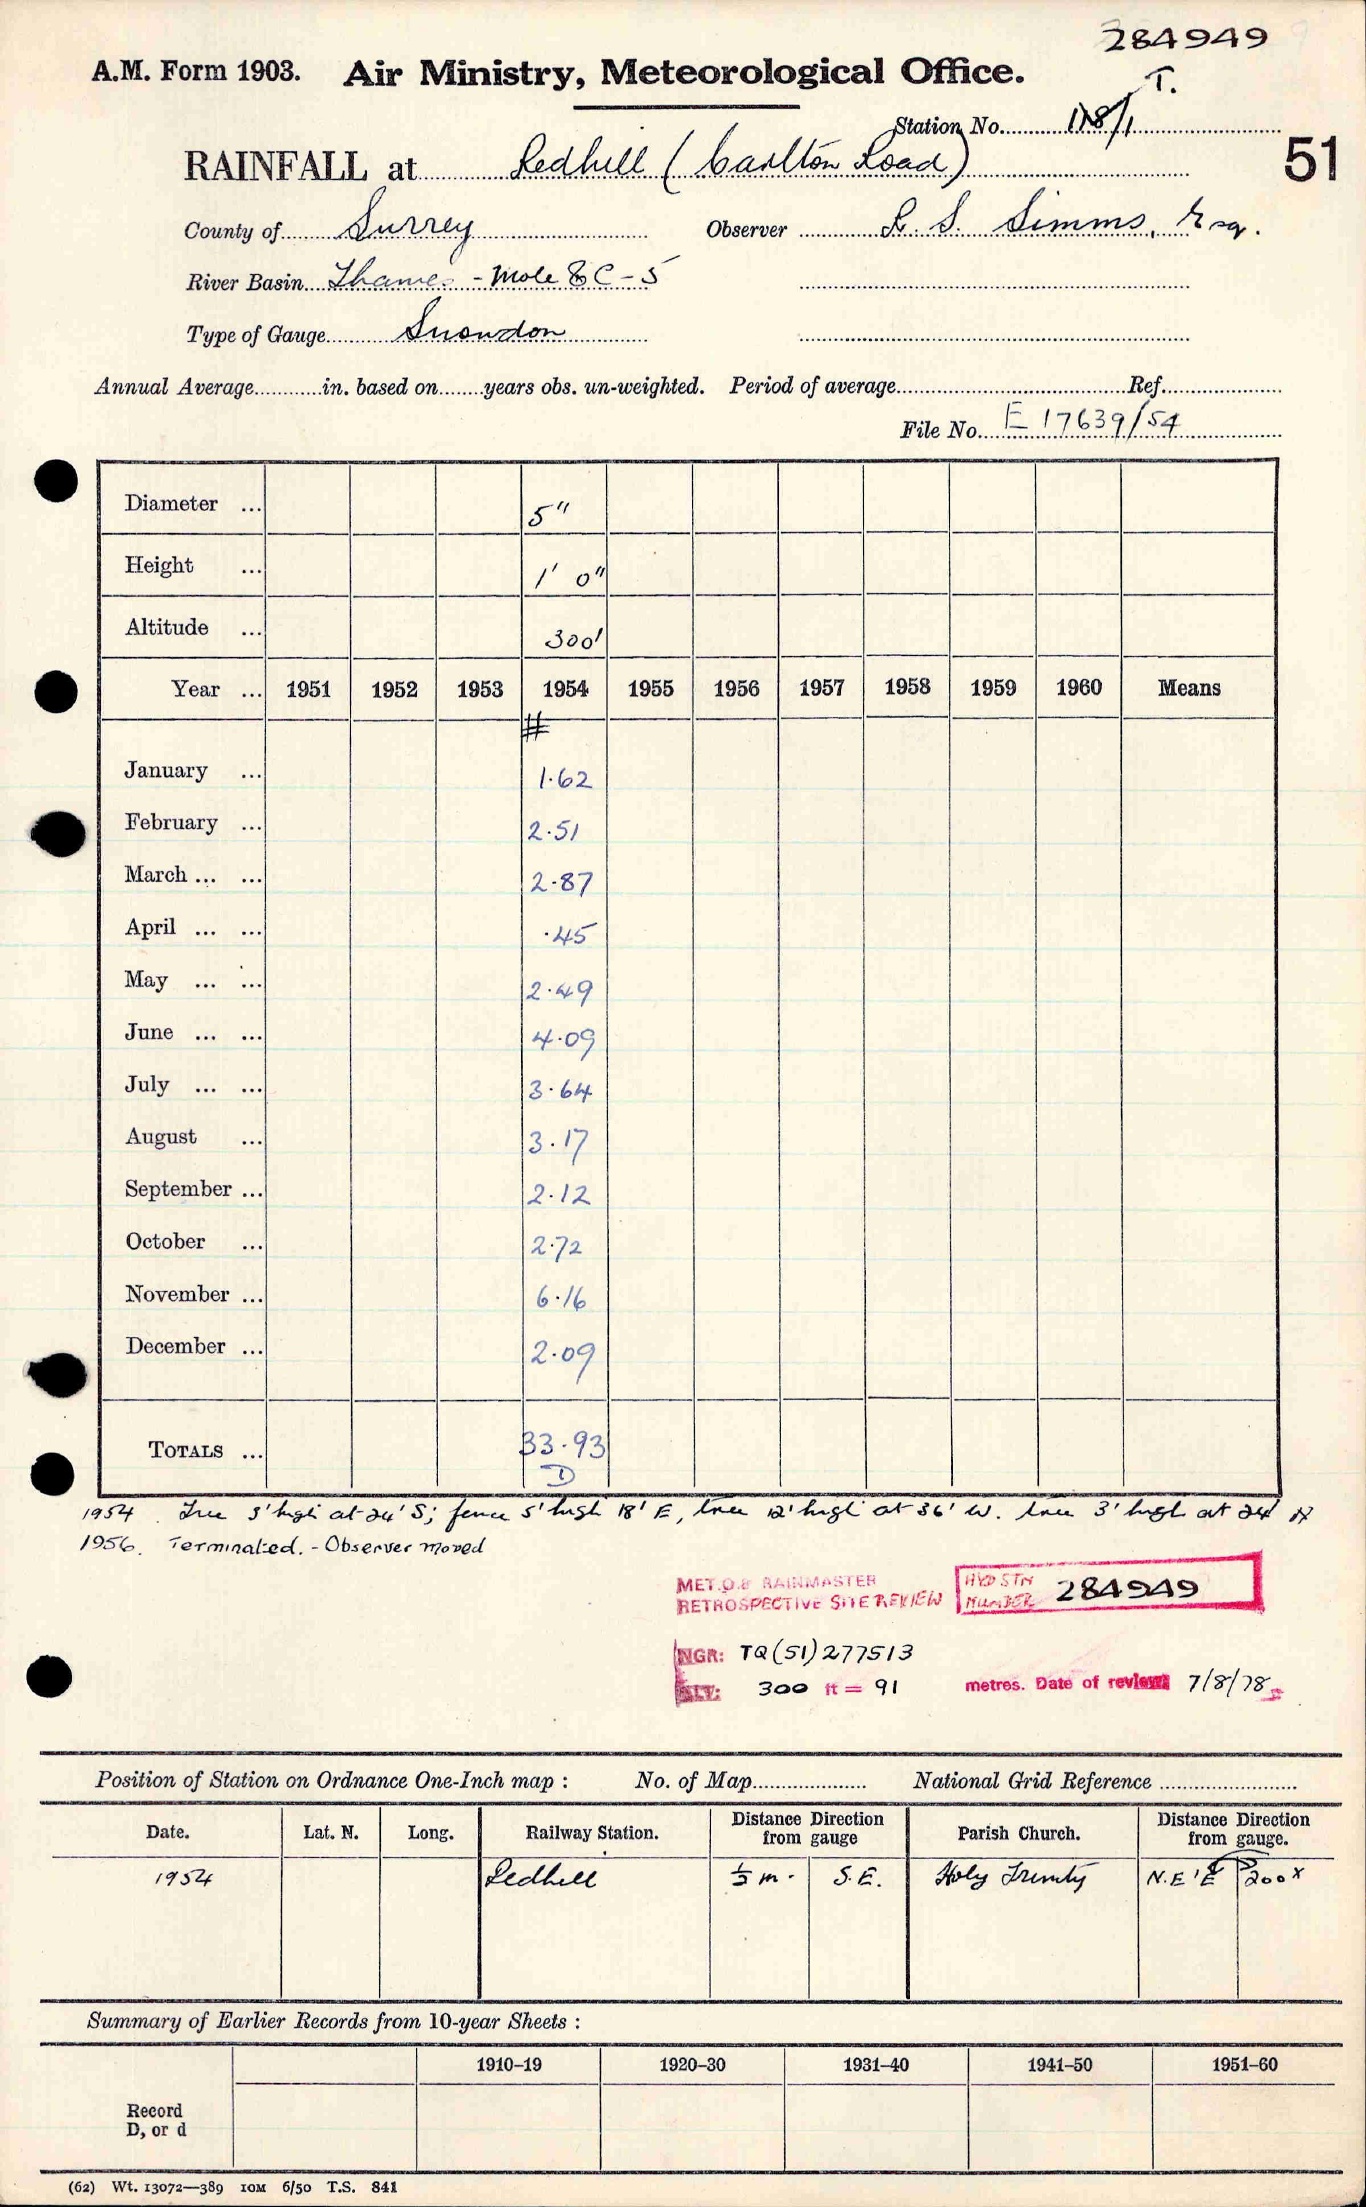 284949
A.M. Form 1903. Air Ministry, Meteorological Office.
T.
Station No. 118/1
RAINFALL at Redhill (Carlton Road)
51
County of Surrey Observer R. S. Simms, Esq.
River Basin Thames - Mole & C - 5
Type of Gauge Snowdon
Annual Average in. based on years obs. un-weighted. Period of average Ref.
File No. E 17639/54
Diameter ... 5"
Height ... 1' 0"
Altitude ... 300'
Year ... 1951 1952 1953 1954 1955 1956 1957 1958 1959 1960 Means
#
January ... 1.62
February ... 2.51
March ... ... 2.87
April ... ... .45
May ... ... 2.49
June ... ... 4.09
July ... ... 3.64
August ... 3.17
September ... 2.12
October ... 2.72
November ... 6.16
December ... 2.09
TOTALS ... 33.93
D
1954. Tree 3' high at 24' S; fence 5' high 18' E, tree 12' high at 36' W. tree 3' high at 24' N
1956. Terminated. - Observer moved
MET.O.8 RAINMASTER
RETROSPECTIVE SITE REVIEW
HYD STN
NUMBER 284949
NGR: TQ(51)277513
ALT: 300 ft = 91 metres. Date of review 7/8/78
Position of Station on Ordnance One-Inch map : No. of Map National Grid Reference
Date. Lat. N. Long. Railway Station. Distance Direction from gauge Parish Church. Distance Direction from gauge.
1954 Redhill ½ m. S.E. Holy Trinity N.E'E 200 x
Summary of Earlier Records from 10-year Sheets :
1910–19 1920–30 1931–40 1941–50 1951–60
Record
D, or d
(62) Wt. 13072—389 10M 6/50 T.S. 841